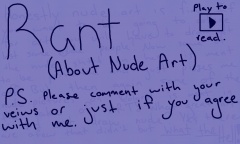 Rant
Play to
read.
(About Nude Art)
P.S. Please comment with your
veiws or just if you agree
with me.